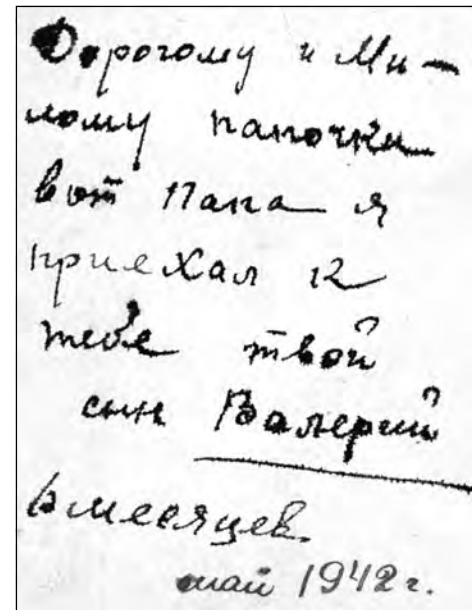 Дорогому и Ми-
лому папочки
вот Папа я
приехал к
тебе твой
сын Валерий
6 месяцев.
май 1942 г.